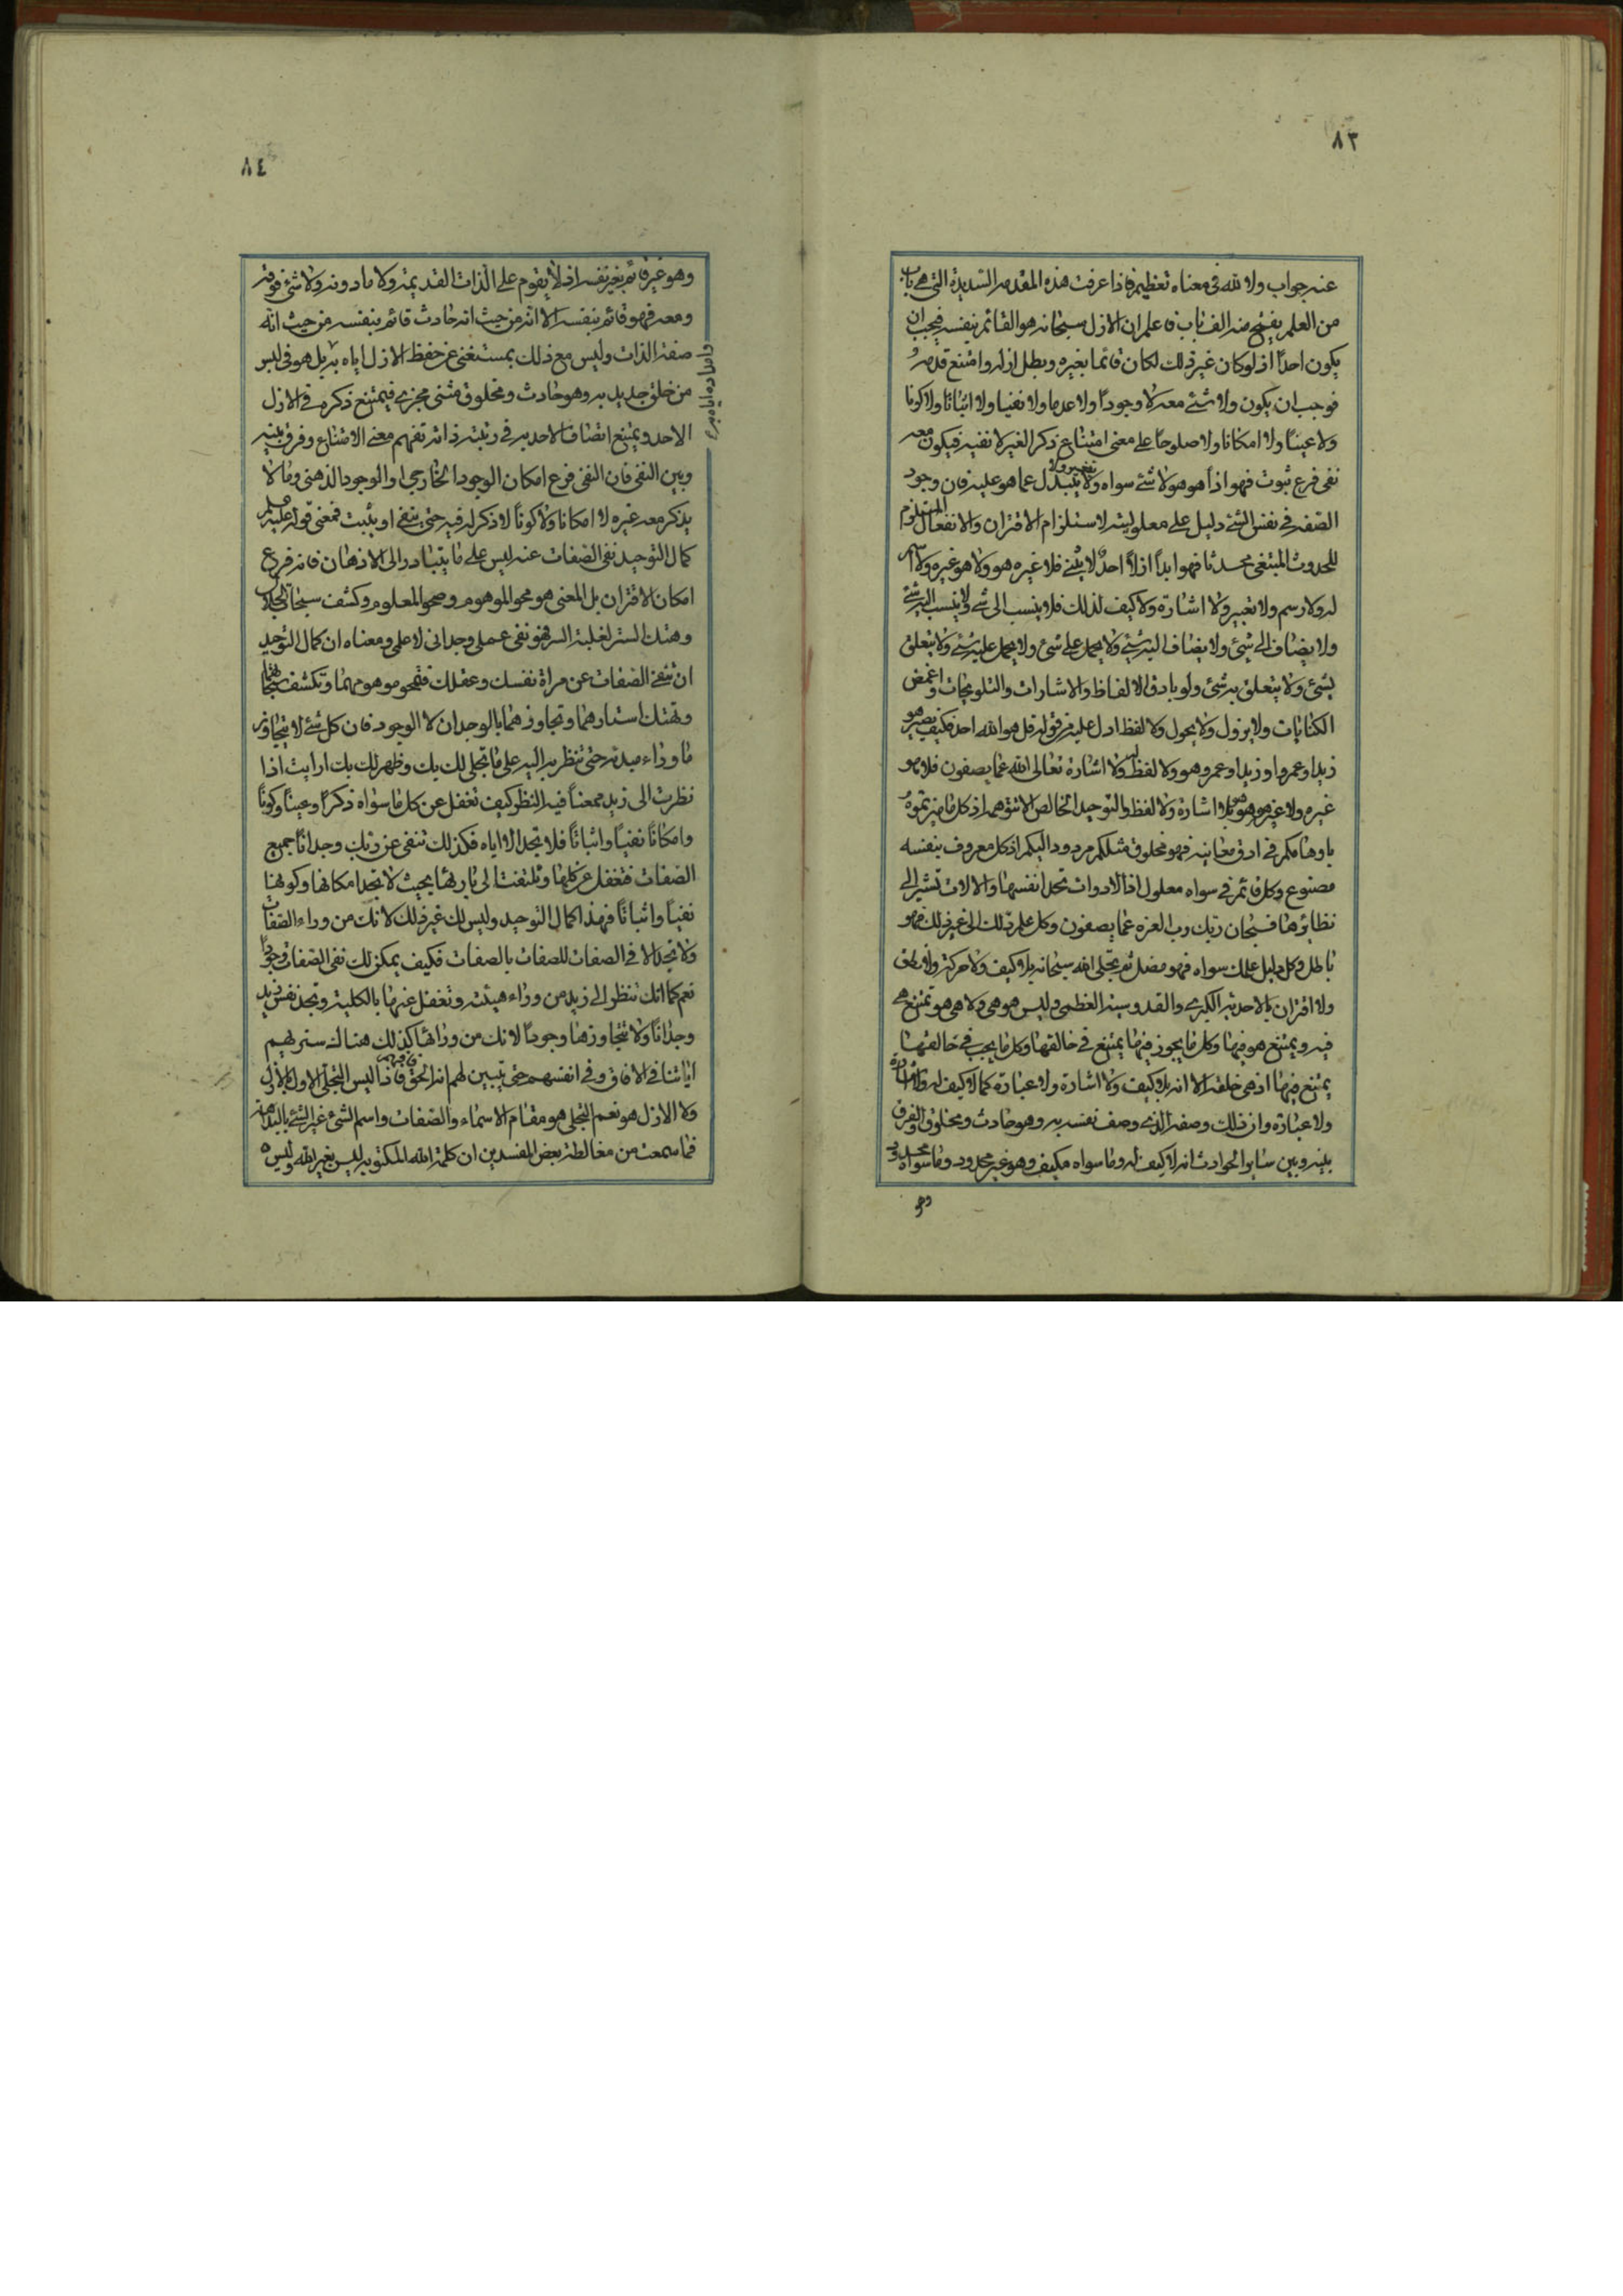 ٨٣
عنه جواب ولا لله في معناه تعظيم فاذا عرفت هذه المقدمه السديدة التي هي باب
من العلم يفتح منه الف باب فاعلم ان الازل سبحانه هو القائم بنفسه فيجب ان
يكون احداً اذ لو كان غير ذلك لكان قائما بغيره وبطل ازله وامتنع قدمه
فوجب ان يكون ولا شئ معه لا وجوداً ولا عدما ولا نفيا ولا اثباتا ولا كونا
ولا عيناً ولا امكانا ولا صلوحاً على معنى امتناع ذكر الغير لا نفيه فيكون معه
نفى فرع ثبوت فهو اذاً هو هو لا شئ سواه ولا يتبدل عما هو عليه فان وجود
الصفه في نفس الشئ دليل على معلوليته لاستلزام الاقتران والانفعال المستلزم
للحدوث المبتغى محدثا فهو ابداً ازلاً احدٌ لا يثنى فلا غيره هو ولا هو غيره ولا اسم
له ولا رسم ولا تعبير ولا اشارة ولا كيف لذلك فلا ينسب الى شئ ولا ينسب اليه شئ
ولا يضاف الى شئ ولا يضاف اليه شئ ولا يحمل على شئ ولا يحمل عليه شئ ولا يتعلق
بشئ ولا يتعلق به شئ ولو بادق الالفاظ والاشارات والتلويحات واغمض
الكنايات ولا يزول ولا يحول ولا لفظ ادل عليه من قوله قل هو الله احد فكيف يصير هو
زيدا وعمروا وزيدا وعمرو هو ولا لفظ له ولا اشارة تعالى الله عما يصفون فلا هو
غيره ولا غيره هو بلا اشارة ولا لفظ والتوحيد الخالص الا تتوهمه اذ كل ما ميزتموه
باوهامكم في ادق معانيه فهو مخلوق مثلكم مردود اليكم اذ كل معروف بنفسه
مصنوع وكل قائم في سواه معلول انما الادوات تحد انفسها والالات تشير الى
نظائرها فسبحان ربك رب العزه عما يصفون وكل علم دلك الى غير ذلك فهو
باطل وكل دليل علمك سواه فهو مضل ثم تجلى الله سبحانه بلا كيف ولا حركة ولا نطق
ولا اقتران بالاحديه الكبرى والقدوسيه العظمى وليس هو هي ولا هي هو تمتنع هي
فيه ويمتنع هو فيها وكل ما يجوز فيها يمتنع في خالقها وكل ما يجب في خالقها
يمتنع فيها اذ هي خلقه الا انه بلا كيف ولا اشارة ولا عبارة كما لا كيف له ولا اشارة
ولا عبارة وان ذلك وصفه الذي وصف نفسه به وهو حادث ومخلوق والفرق
بينه وبين ساير الحوادث انه لا كيف له وما سواه مكيف وهو غير محدود وما سواه محدود
وهو
٨٤
وهو غير قائم بغير نفسه اذ لا يقوم على الذات القديمة ولا ما دونه ولا شئ فوقه
ومعه فهو قائم بنفسه الا انه من حيث انه حادث قائم بنفسه من حيث انه
صفة الذات وليس مع ذلك بمستغنى عن حفظ الازل اياه به بل هو في لبس
من خلق جديد به وهو حادث ومخلوق مثنى مجزى فيمتنع ذكره في الازل
الاحد ويمتنع اتصاف الاحد به في رتبة ذاته تفهم معنى الامتناع وفرق بينه
وبين النفى فان النفى فرع امكان الوجود الخارجي او الوجود الذهنى وما لا
يذكر معه غيره لا امكانا ولا كوناً لا ذكر له فيه حتى ينفى او يثبت فمعنى قوله عليه السلم
كمال التوحيد نفى الصفات عنه ليس على ما يتبادر الى الاذهان فانه فرع
امكان الاقتران بل المعنى هو محو الموهوم وصحو المعلوم وكشف سبحات الجلال
وهتك الستر لغلبة السر فهو نفى عملى وجدانى لا علمى ومعناه ان كمال التوحيد
ان تنفى الصفات عن مرآة نفسك وعقلك فتمحو موهومها وتكشف سبحاتها
وتهتك استارها وتجاوزها بالوجدان لا الوجود فان كل شئ لا يتجاوز
ما وراء مبدئه حتى تنظر به اليه على ما تجلى لك بك وظهر لك بك ارايت اذا
نظرت الى زيد ممعناً فيه النظر كيف تغفل عن كل ما سواه ذكراً وعيناً وكوناً
وامكاناً نفياً واثباتاً فلا تجد الا اياه فكذلك تنفى عن ربك وجداناً جميع
الصفات فتغفل عن كلها وتلتفت الى بارئها بحيث لا تجد امكانها وكونها
نفياً واثباتاً فهذا كمال التوحيد وليس لك غير ذلك لانك من وراء الصفات
ولا تجد الا في الصفات للصفات بالصفات فكيف يمكن لك نفى الصفات وجوداً
نعم كما انك تنظر الى زيد من وراء هيئته وتغفل عنها بالكلية وتجد نفس زيد
وجداناً ولا تتجاوزها وجوداً لانك من ورائها كذلك هنالك سنريهم
آياتنا في الافاق وفي انفسهم حتى يتبين لهم انه الحق فاذا ليس التجلى الاول بالازل
ولا الازل هو نعم التجلى هو مقام الاسماء والصفات واسم الشئ غير الشئ بالبداهة
فما سمعت من مغالطة بعض المفسدين ان كلمة الله المكتوبه ليس بغير الله وليس